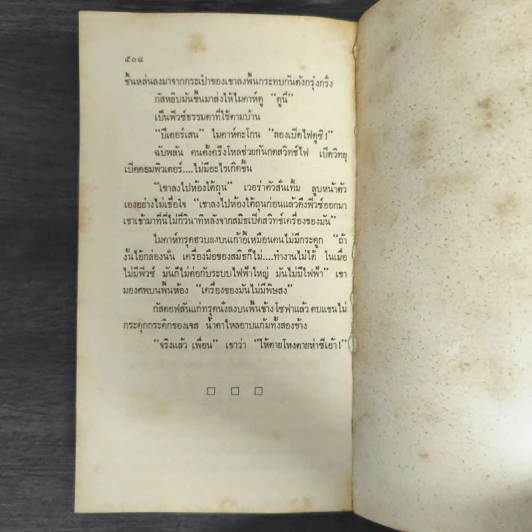 ๕๐๘
ชิ้นหล่นลงมาจากกระเป๋าของเขาลงพื้นกระทบกันดังกรุ๋งกริ๋ง
กัสหยิบมันขึ้นมาส่งให้ไมคาห์ดู “ดูนี่”
เป็นฟิวซ์ธรรมดาที่ใช้ตามบ้าน
“ปีเตอร์เสน” ไมคาห์ตะโกน “ลองเปิดไฟดูซิ!”
ฉับพลัน คนตั้งครึ่งโหลช่วยกันกดสวิทซ์ไฟ เปิดวิทยุ
เปิดคอมพิวเตอร์....ไม่มีอะไรเกิดขึ้น
“เขาลงไปห้องใต้ถุน” เวอร่าตัวสั่นเทิ้ม ลูบหน้าตัว
เองอย่างไม่เชื่อใจ “เขาลงไปห้องใต้ถุนก่อนแล้วดึงฟิวซ์ออกมา
เขาเข้ามาที่นี่ไม่กี่วินาทีหลังจากสมิธเปิดสวิทซ์เครื่องของมัน”
ไมคาห์ทรุดฮวบลงบนเก้าอี้เหมือนคนไม่มีกระดูก “ถ้า
งั้นไอ้กล่องนั่น เครื่องมือของสมิธก็ไม่....ทำงานไม่ได้ ในเมื่อ
ไม่มีฟิวซ์ มันก็ไม่ต่อกับระบบไฟฟ้าใหญ่ มันไม่มีไฟฟ้า” เขา
มองศพบนพื้นห้อง “เครื่องของมันไม่มีพิษสง”
กัสตอฟสันแก่ทรุดนั่งลงบนพื้นข้างโซฟาแล้ว ตบแขนไม่
กระดุกกระดิกของเจส น้ำตาไหลอาบแก้มทั้งสองข้าง
“จริงแล้ว เพื่อน” เขาว่า “ให้ตายโหงตายห่าซีเอ้า!”